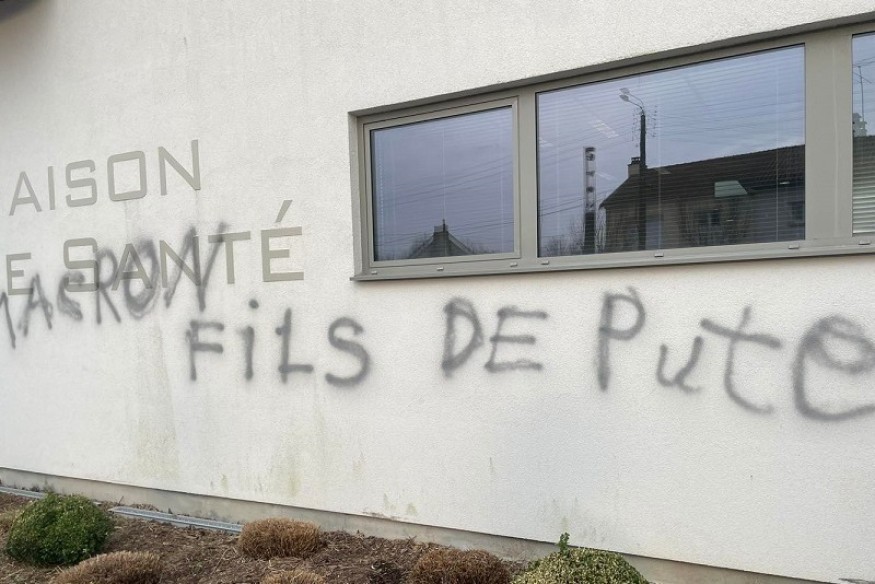 AISON
E SANTÉ
MACRON
FiLS DE Pute